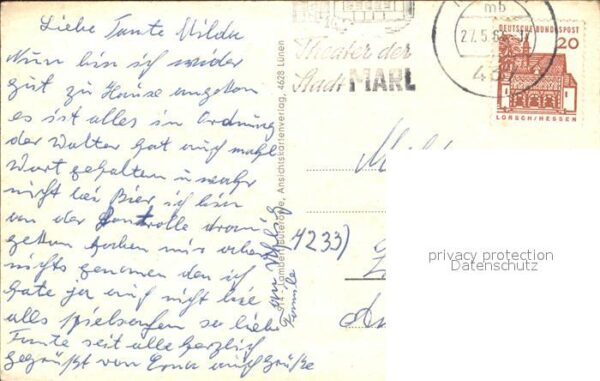 Liebe Tante Milda
Nun bin ich wieder
gut zu Hause angekom
es ist alles in Ordnung
der Walter hat auch mahl
Wort gehalten u wahr
nicht bei Bier ich bin
an der Kontrolle dran
haben mir aber
nichts genomen den ich
hate ja auch nicht bie
alls spielsachen so liebe
Tante seit alle herzlich
gegrüßt von Erna auch grüße
an
Familie
Ansichtskartenverlag, 4628 Lünen
Theater der
Stadt MARL
mb
27.5.6
DEUTSCHE BUNDESPOST
20
LORSCH/HESSEN
4233)
privacy protection
Datenschutz